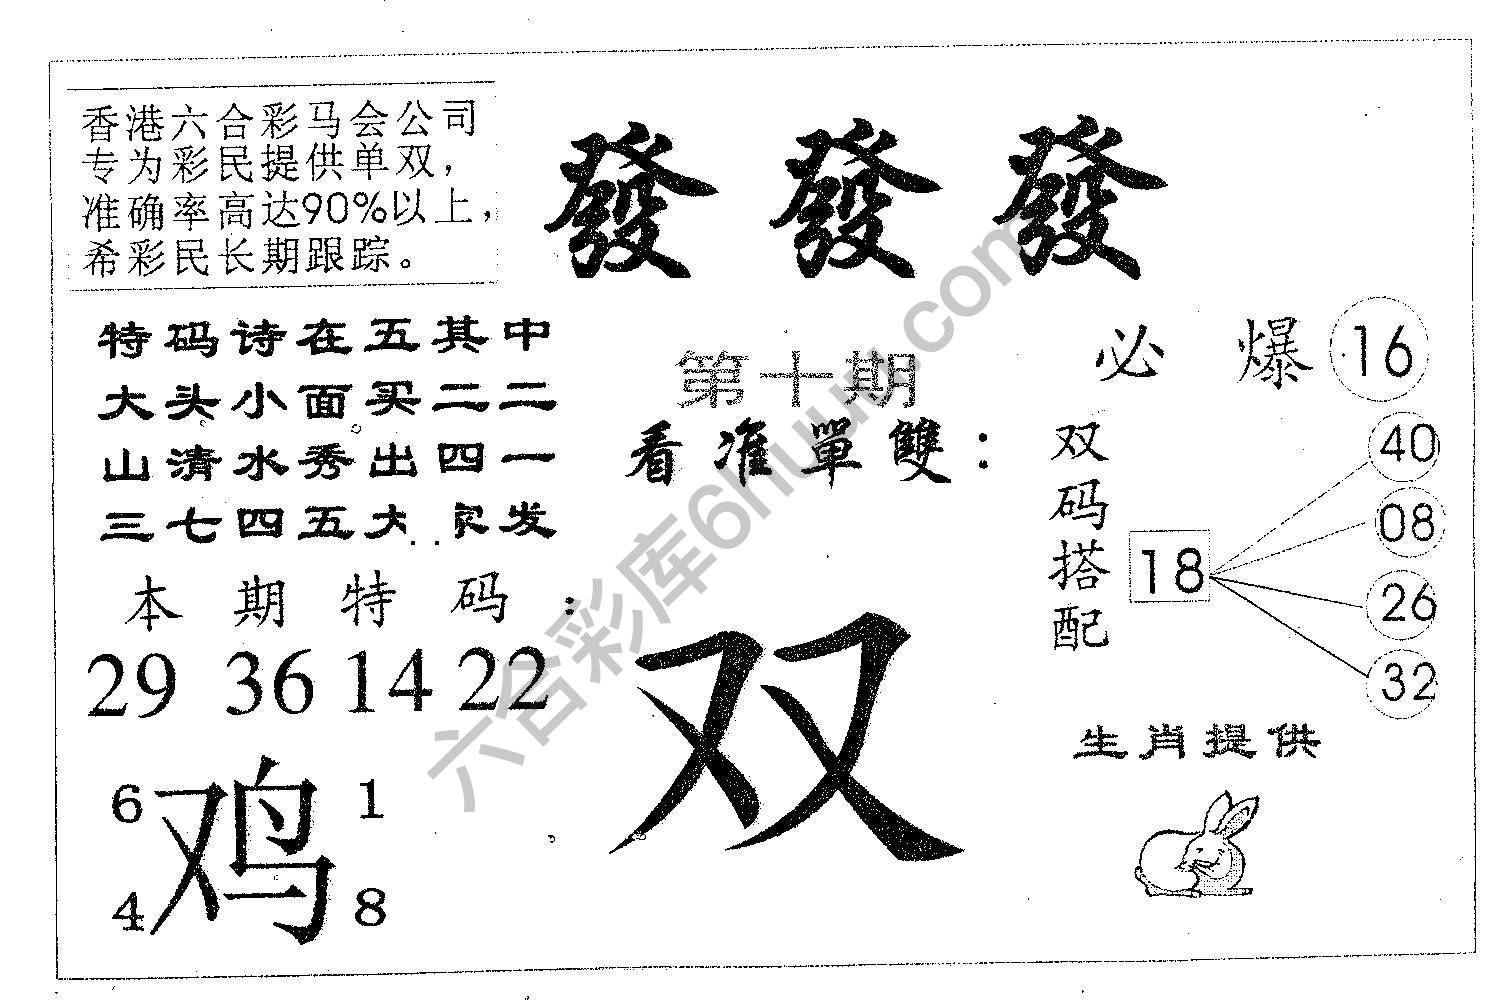 香港六合彩马会公司
专为彩民提供单双，
准确率高达90%以上，
希彩民长期跟踪。
發 發 發
特码诗在五其中
大头小面买二二
山清水秀出四一
三七四五大家发
本期特码：
29 36 14 22
6 1
鸡
4 8
第十期
看准單雙：
双
必爆 16
双码搭配
18
40
08
26
32
生肖提供
六合彩库6huuu.com